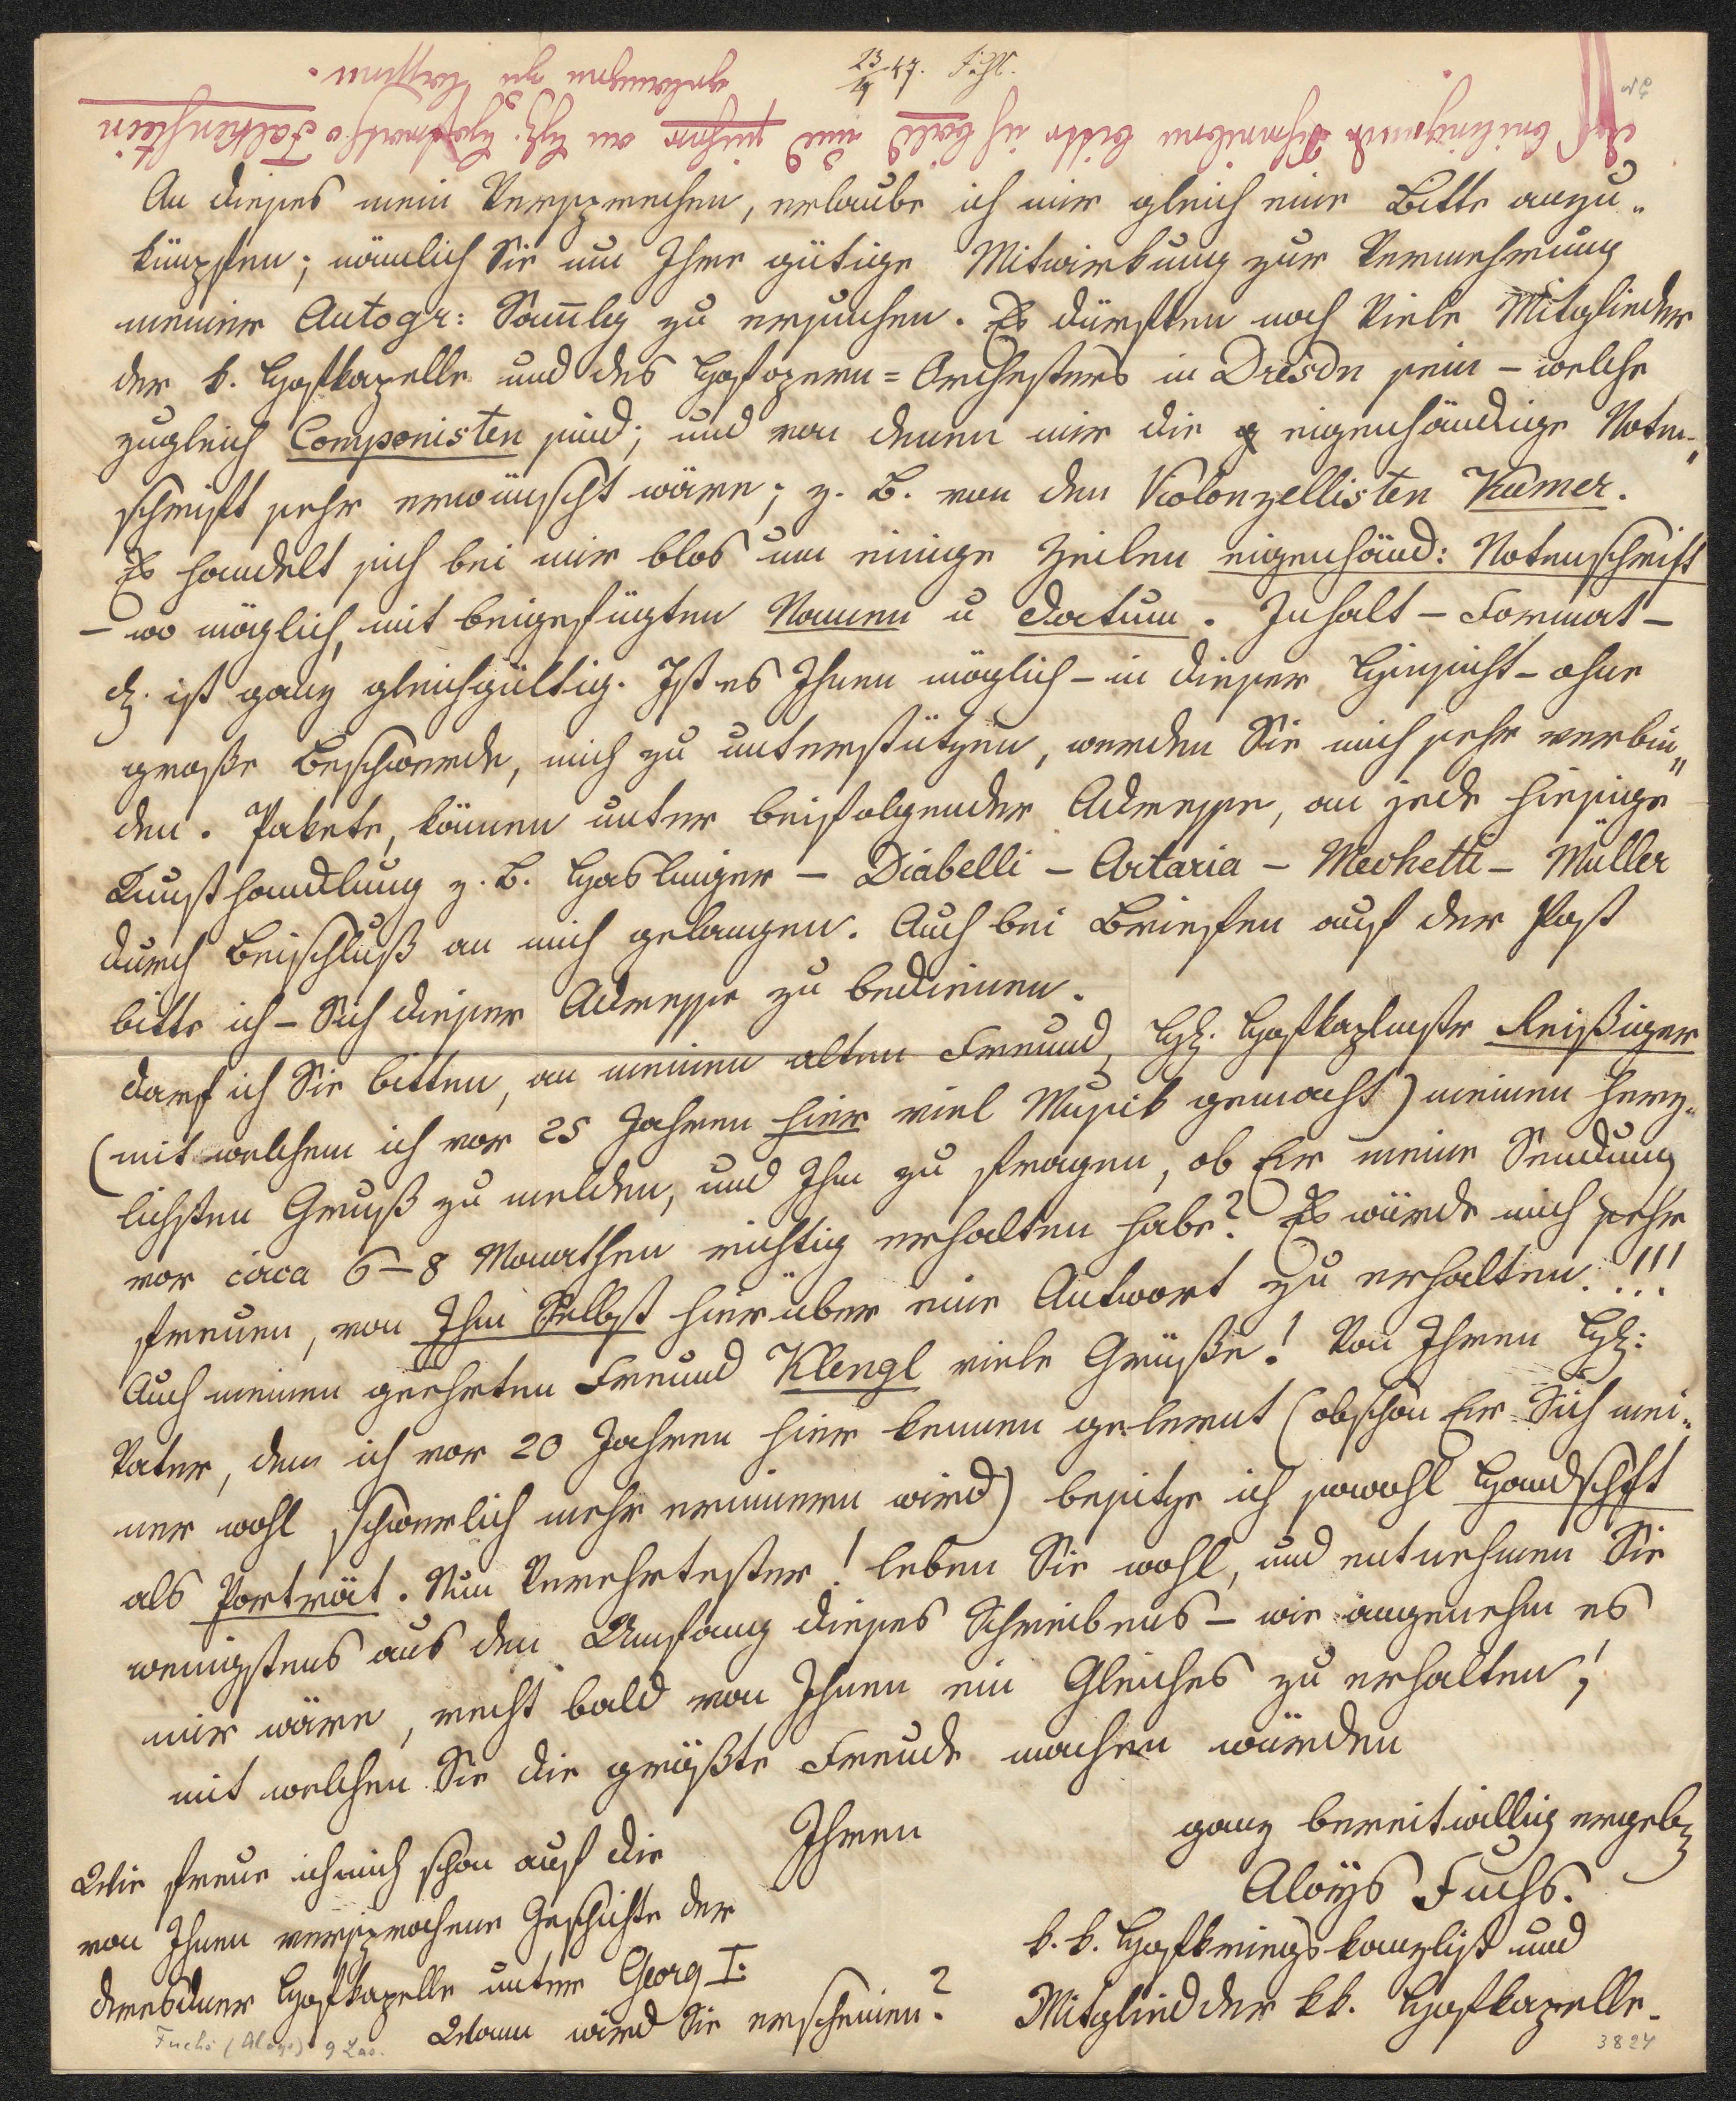 23/4 47. F. Gl.
Das beiliegende Schreiben bitte ich bald und sicher an H: Hofrath v Falkenstein
gelangen zu lassen.
An dieses mein Versprechen, erlaube ich mir gleich eine Bitte anzu„
knüpfen; nämlich Sie um Ihre gütige Mitwirkung zur Vermehrung
meiner Autogr: Samlg zu ersuchen. Es dürften noch Viele Mitglieder
der k. Hofkapelle und des Hofopern=Orchesters in Dresdn sein – welche
zugleich Componisten sind; und von denen mir die eigenhändige Noten„
schrift sehr erwünscht wäre; z. B. von den Violonzellisten Kumer.
Es handelt sich bei mir blos um einige Zeilen eigenhänd: Notenschrift
– wo möglich, mit beigefügten Namen u Datum. Inhalt – Format –
etz. ist ganz gleichgültig. Ist es Ihnen möglich – in dieser Hinsicht – ohne
große Beschwerde, mich zu unterstützen, werden Sie mich sehr verbin„
den. Pakete, können unter beifolgender Adresse, an jede hiesige
Kunsthandlung z. B. Haslinger – Diabelli – Artaria – Mechetti – Müller
durch Beischluß an mich gelangen. Auch bei Briefen auf der Post
bitte ich – Sich dieser Adresse zu bedienen.
Darf ich Sie bitten, an meinen alten Freund, H: Hofkaplmstr Reißiger
(mit welchem ich vor 25 Jahren hier viel Musik gemacht) meinen herz„
lichsten Gruß zu melden, und Ihn zu fragen, ob Er meine Sendung
vor circa 6–8 Monathen richtig erhalten habe? Es würde mich sehr
freuen, von Ihm Selbst hierüber eine Antwort zu erhalten. !!!
Auch meinen geehrten Freund Klengl viele Grüße! Von Ihren H:
Vater, den ich vor 20 Jahren hier kennen gelernt (obschon Er Sich mei„
ner wohl schwerlich mehr erinnern wird) besitze ich sowohl Handschft
als Porträt. Nun Verehrtester! leben Sie wohl, und entnehmen Sie
wenigstens aus den Umfang dieses Schreibens – wie angenehm es
mir wäre, recht bald von Ihnen ein Gleiches zu erhalten;
mit welchen Sie die größte Freude machen würden
Ihren
ganz bereitwillig ergebz
Aloys Fuchs.
k. k. Hofkriegskanzlist und
Mitglied der kk. Hofkapelle.
Wie freue ich mich schon auf die
von Ihnen versprochene Geschichte der
dresdner Hofkapelle unter Georg I:
Wann wird Sie erscheinen?
Fuchs (Aloys)
3824